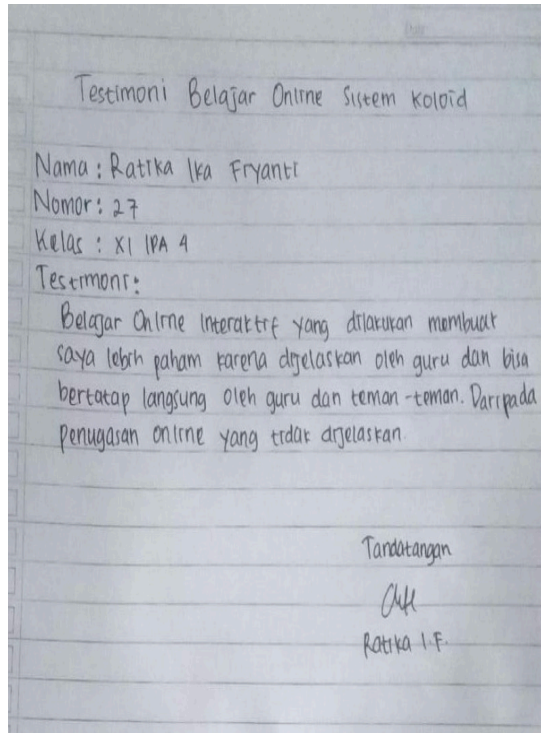 Testimoni Belajar Online Sistem Koloid
Nama : Ratika Ika Fryanti
Nomor : 27
Kelas : XI IPA 4
Testimoni :
Belajar Online Interaktif yang dilakukan membuat
saya lebih paham karena dijelaskan oleh guru dan bisa
bertatap langsung oleh guru dan teman-teman. Daripada
penugasan online yang tidak dijelaskan.
Tandatangan
Ratika I.F.